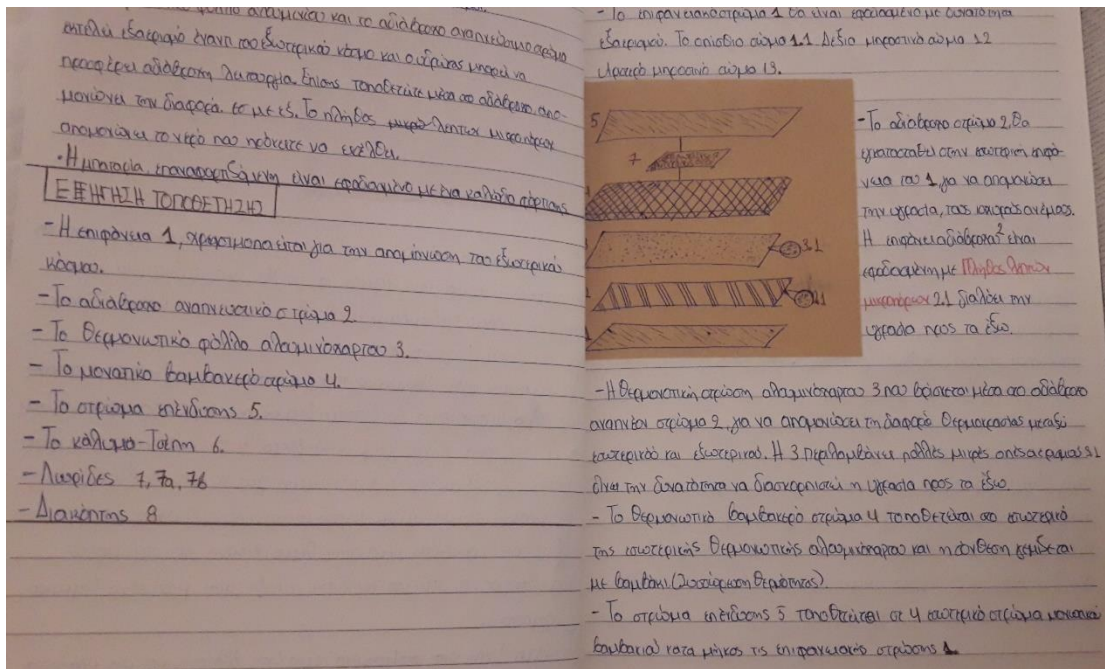 αλουμινίου και το αδιάβροχο αναπνεύσιμο στρώμα
εκτελεί εξαερισμό έναντι του εξωτερικού κόσμου και ο ιδρώτας μπορεί να
προσφέρει αδιάβροχη λειτουργία. Επίσης τοποθετείτε μέσα στο αδιάβροχο απο-
μονώνει την διαφορά το με εξ. Το πλήθος λεπτών μικροπόρων
απομονώνει το νερό που πρόκειτε να εισέλθει.
· Η μπαταρία, επαναφορτιζόμενη είναι εφοδιασμένο με ένα καλώδιο φόρτισης
ΕΞΗΓΗΣΗ ΤΟΠΟΘΕΤΗΣΗΣ
- Η επιφάνεια 1, χρησιμοποιείται για την απομόνωση του εξωτερικού
κόσμου.
- Το αδιάβροχο αναπνευστικό στρώμα 2
- Το θερμονωτικό φύλλο αλουμινόχαρτου 3.
- Το μονωτικό βαμβακερό στρώμα 4.
- Το στρώμα επένδυσης 5.
- Το κάλυμα-Τσέπη 6.
- Λωρίδες 7, 7α, 7β
- Διακόπτης 8
- Το επιφανειακό στρώμα 1 θα είναι εφοδιασμένο με δυνατότητα
εξαερισμού. Το οπίσθιο σώμα 1.1 Δεξιο μπροστινό σώμα 1.2
Αριστερό μπροστινό σώμα 13.
5
7
3.1
- Το αδιάβροχο στρώμα 2 θα
εγκατασταθεί στην εσωτερική επιφά-
νεια του 1, για να απομονώσει
την υγρασία, τους ισχυρούς ανέμους.
Η επιφάνεια αδιάβροχα 2 είναι
εφοδιασμένη με Πλήθος λεπτών
μικροπόρων 2.1 διαλύει την
υγρασία προς τα έξω.
- Η θερμονοτική στρώση αλουμινόχαρτου 3 που βρίσκεται μέσα στο αδιάβροχο
αναπνέον στρώμα 2, για να απομονώσει τη διαφορά θερμοκρασίας μεταξύ
εσωτερικού και εξωτερικού. Η 3 περιλαμβάνει πολλές μικρές οπές αερισμού 3.1
δίνει την δυνατότητα να διασκορπιστεί η υγρασία προς τα έξω.
- Το θερμονωτικό βαμβακερό στρώμα 4 τοποθετείται στο εσωτερικό
της εσωτερικής θερμονωτικής αλουμινόχαρτου και η σύνθεση γεμίζεται
με βαμβάκι (συσσώρευση θερμότητας).
- Το στρώμα επένδυσης 5 τοποθετείται σε 4 εσωτερικό στρώμα μονωτικό
βαμβακιού κατα μήκος τις επιφανειακής στρώσης 1.